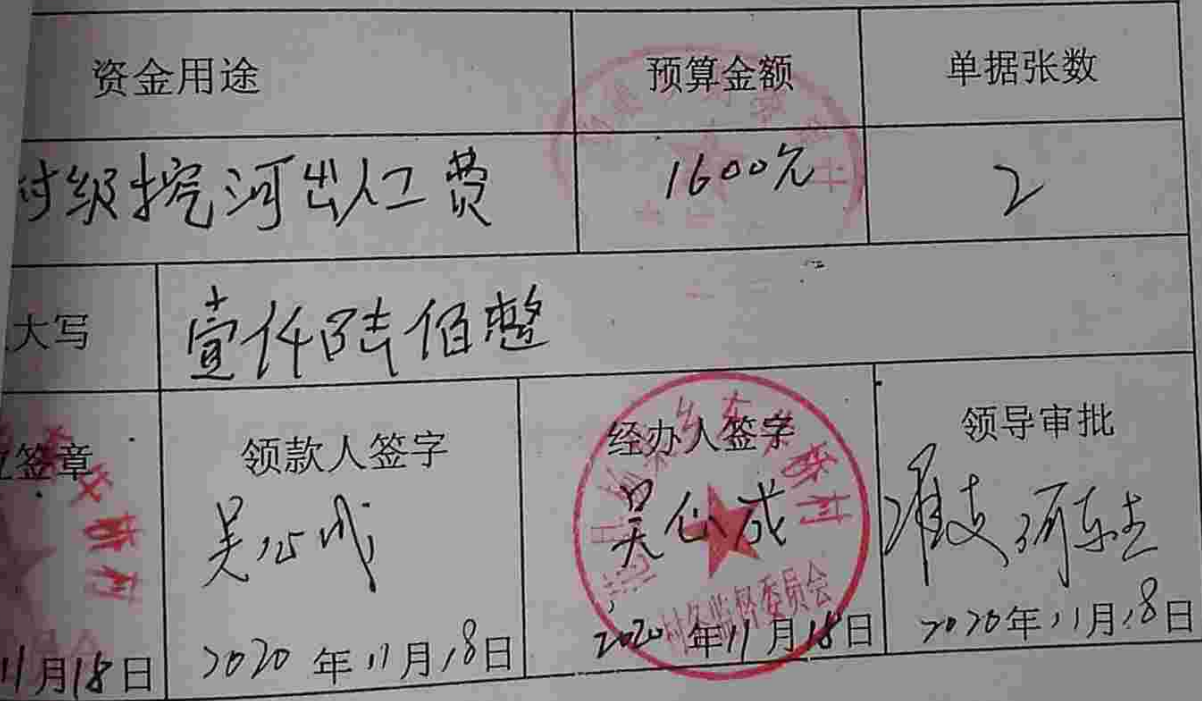 资金用途 预算金额 单据张数
村级挖河出人工费 1600元 2
大写 壹仟陆佰整
签章 领款人签字 经办人签字 领导审批
吴心成 吴心成 准支
村务监督委员会
11月18日 2020年11月18日 2020年11月18日 2020年11月18日